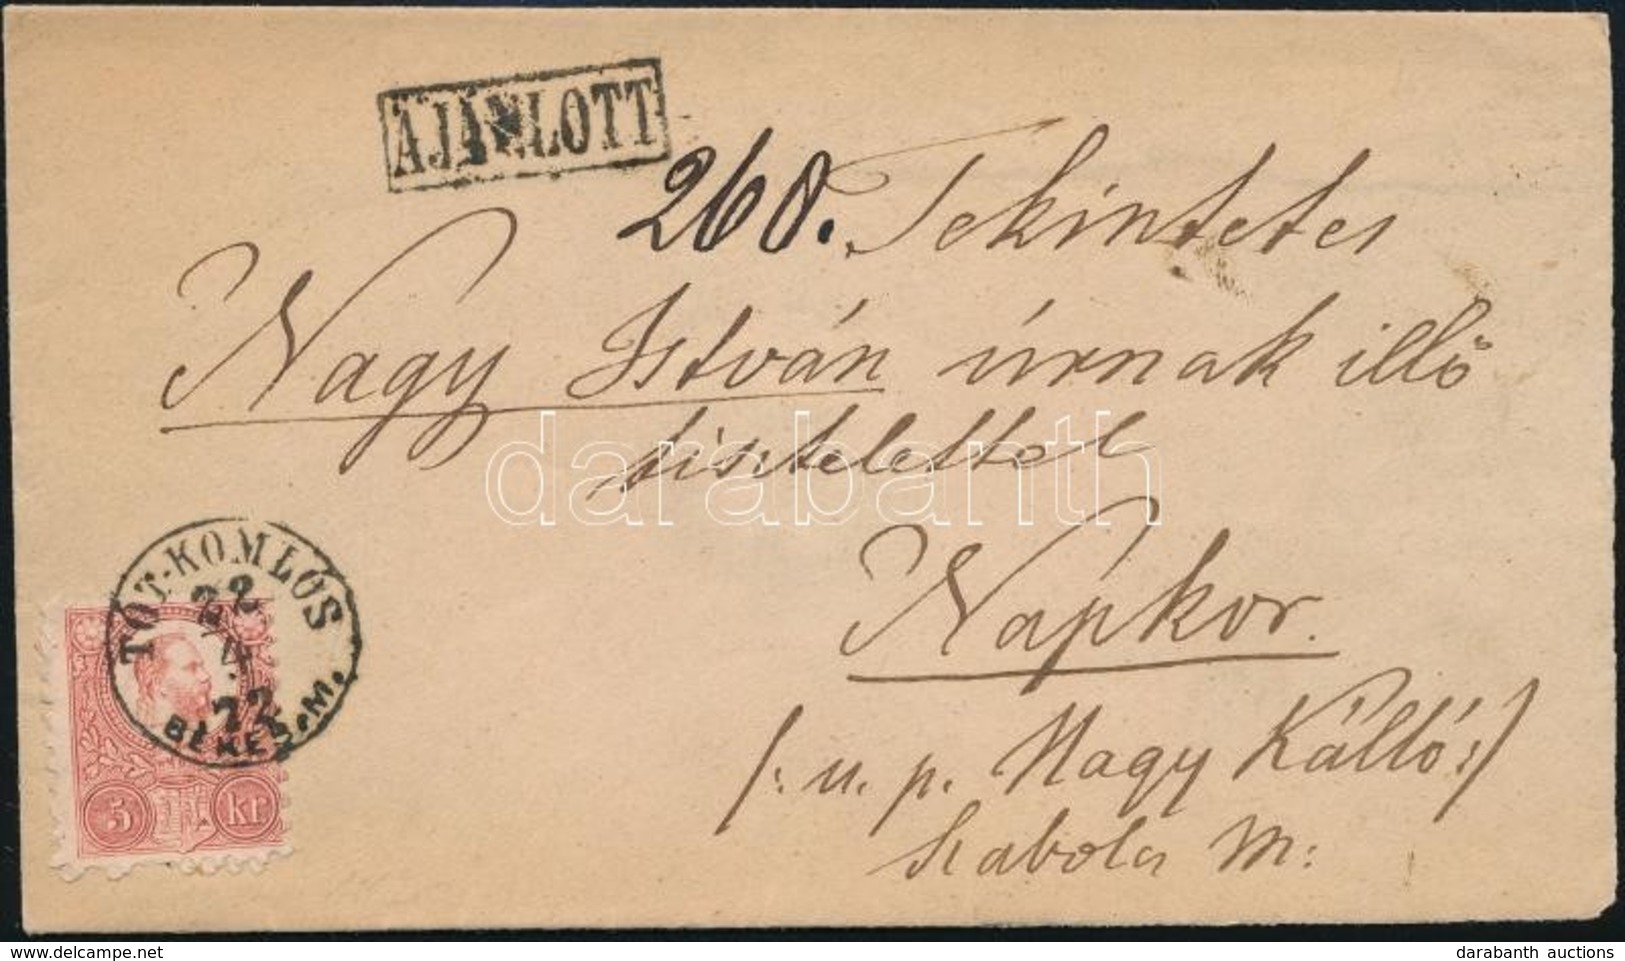 AJÁNLOTT
260. Tekintetes
Nagy István úrnak illő
tisztelettel
darabanth
Napkor.
/: u. p. Nagy Kálló :/
Szabolcs M:
TÓT-KOMLÓS
22
4
72
BÉKÉS.M.
5 kr
darabanth auctions